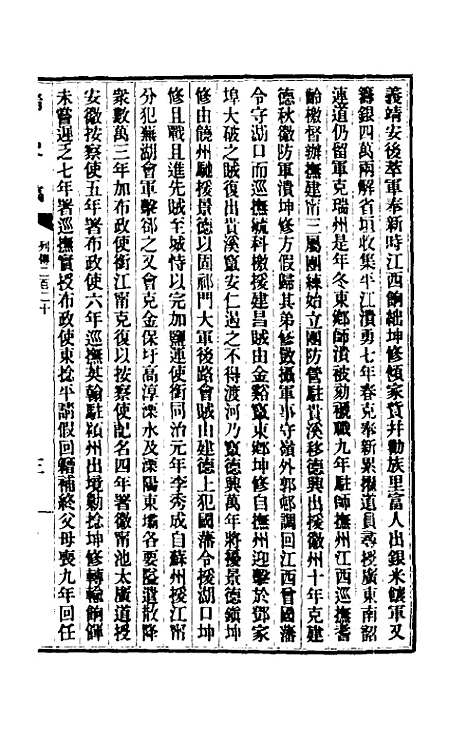 義靖安後率軍奉新時江西餉絀坤修傾家貲并勸族里富人出銀米饟軍又
籌銀四萬兩解省垣收集平江潰勇七年春克奉新累擢道員尋授廣東南韶
連道仍留軍克瑞州是年冬東鄉師潰被劾褫職九年駐師撫州江西巡撫耆
齡檄督辦撫建甯三屬團練始立團防營駐貴溪移德興出援徽州十年克建
德秋徽防軍潰坤修方假歸其弟修敳攝軍事守嶺外郭邨調回江西曾國藩
令守湖口而巡撫毓科檄援建昌賊由金谿竄東鄉坤修自撫州迎擊於鄧家
埠大破之賊復出貴溪竄安仁遏之不得渡河乃竄德興萬年將擾景德鎮坤
修由饒州馳援景德以固祁門大軍後路會賊由建德上犯國藩令援湖口坤
修且戰且進先賊至城恃以完加鹽運使銜同治元年李秀成自蘇州援江甯
分犯蕪湖會軍擊卻之又會克金保圩高淳溧水及溧陽東壩各要隘遣散降
衆數萬三年加布政使銜江甯克復以按察使記名四年署徽甯池太廣道授
安徽按察使五年署布政使六年巡撫英翰駐潁州出境勦捻坤修轉輸餉饟
未嘗遲乏七年署巡撫實授布政使東捻平請假回籍補終父母喪九年回任
清史稿 列傳二百二十 三